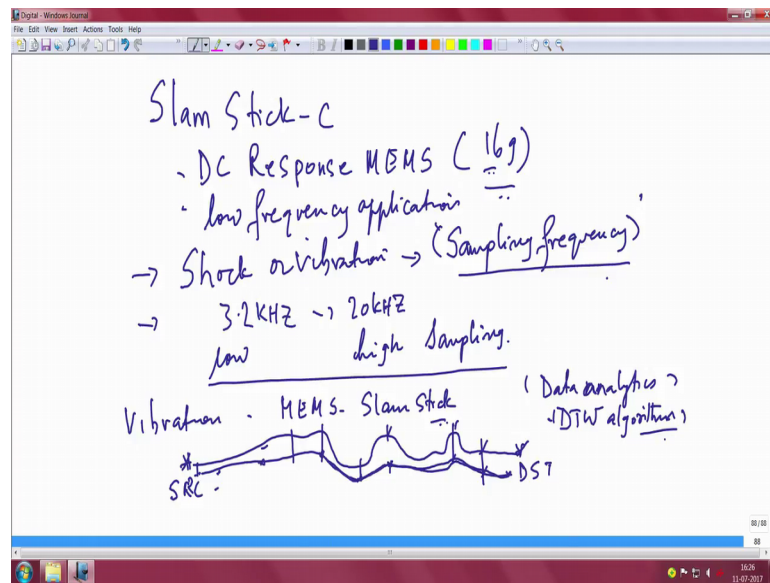 Digital - Windows Journal
File Edit View Insert Actions Tools Help
Slam Stick-C
. DC Response MEMS (16g)
. low frequency application
→ Shock or Vibration → (Sampling frequency)
→ 3.2KHZ → 20KHZ
low high Sampling.
Vibration . MEMS- Slam Stick
(Data analytics)
(DTW algorithm)
SRC
DST
88/88
88
16:26
11-07-2017